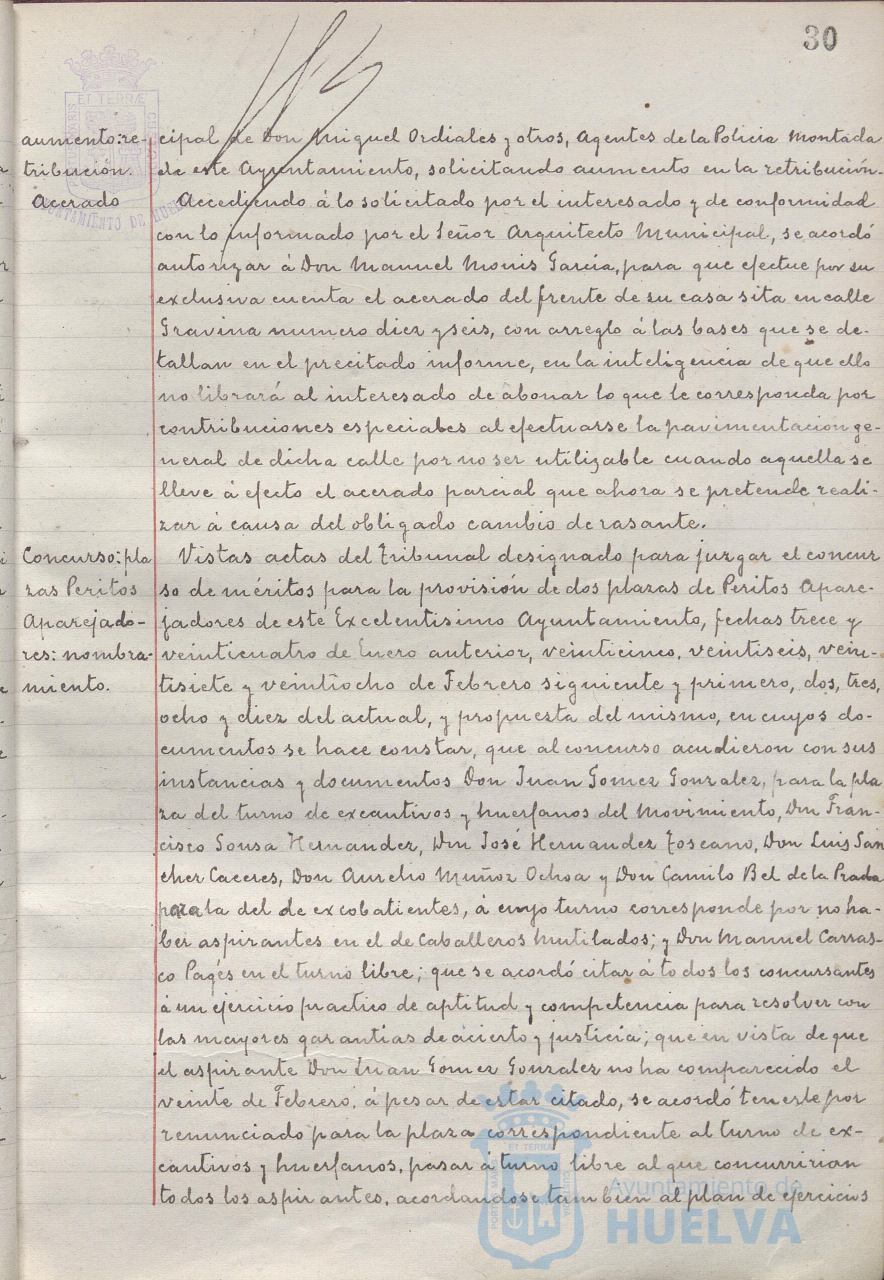 30
aumento: re-
tribución.
Acerado
cipal de Don Miguel Ordiales y otros, Agentes de la Policia Montada
de este Ayuntamiento, solicitando aumento en la retribución.
Accediendo á lo solicitado por el interesado y de conformidad
con lo informado por el Señor Arquitecto Municipal, se acordó
autorizar á Don Manuel Monis García, para que efectue por su
exclusiva cuenta el acerado del frente de su casa sita en calle
Gravina numero diez y seis, con arreglo á las bases que se de-
tallan en el precitado informe, en la inteligencia de que ello
no librará al interesado de abonar lo que le corresponda por
contribuciones especiales al efectuarse la pavimentacion ge-
neral de dicha calle por no ser utilizable cuando aquella se
lleve á efecto el acerado parcial que ahora se pretende reali-
zar á causa del obligado cambio de rasante.
Concurso: pla
zas Peritos
Aparejado-
res: nombra-
miento.
Vistas actas del Tribunal designado para juzgar el concur
so de méritos para la provisión de dos plazas de Peritos Apare-
jadores de este Excelentisimo Ayuntamiento, fechas trece y
veinticuatro de Enero anterior, veinticinco, veintiseis, vein-
tisiete y veintiocho de Febrero siguiente y primero, dos, tres,
ocho y diez del actual, y propuesta del mismo, en cuyos do-
cumentos se hace constar, que al concurso acudieron con sus
instancias y documentos Don Juan Gomez Gonzalez, para la pla
za del turno de excautivos y huerfanos del Movimiento, Don Fran-
cisco Sousa Hernandez, Don José Hernandez Toscano, Don Luis San
chez Caceres, Don Aurelio Muñoz Ochoa y Don Camilo Bel de la Prada
para la del de excobatientes, á cuyo turno corresponde por no ha-
ber aspirantes en el de Caballeros Mutilados; y Don Manuel Carras-
co Pagés en el turno libre; que se acordó citar á todos los concursantes
á un ejercicio practico de aptitud y competencia para resolver con
las mayores garantias de acierto y justicia; que en vista de que
el aspirante Don Juan Gomez Gonzalez no ha comparecido el
veinte de Febrero, á pesar de estar citado, se acordó tenerle por
renunciado para la plaza correspondiente al turno de ex-
cautivos y huerfanos, pasar á turno libre al que concurririan
todos los aspirantes, acordandose tambien al plan de ejercicios
Ayuntamiento de
HUELVA